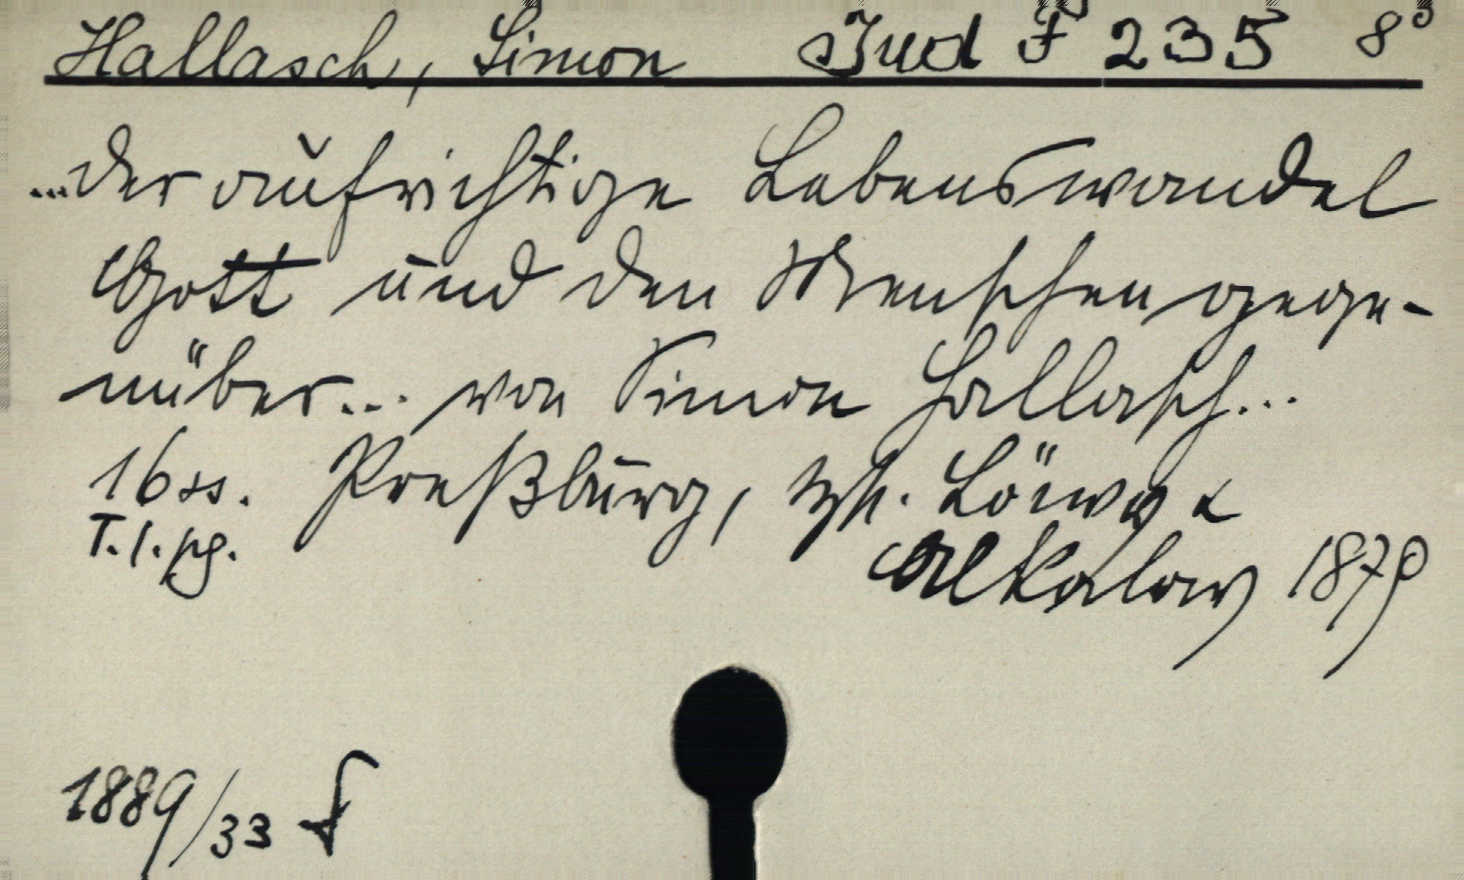 Hallasch, Simon Jud F 235 8°
...der aufrichtige Lebenswandel
Gott und den Menschen gege-
nüber... von Simon Hallasch...
16ss. Preßburg, typ. Löwy &
T.l.pg. Alkalay 1879
1889/33